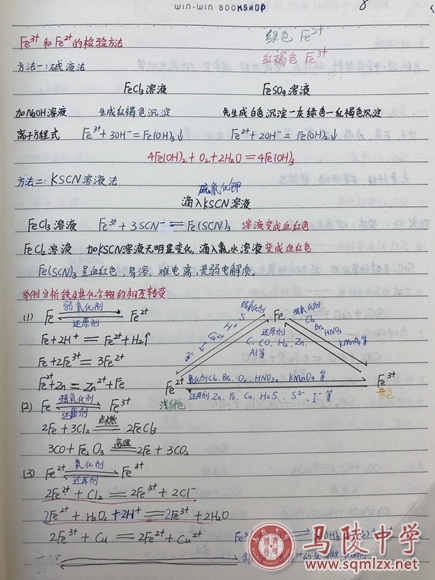 WIN-WIN BOOKSHOP
绿色 Fe²⁺
Fe³⁺和Fe²⁺的检验方法
红褐色 Fe³⁺
方法一:碱液法
FeCl₃溶液 FeSO₄溶液
加NaOH溶液 生成红褐色沉淀 先生成白色沉淀—灰绿色—红褐色沉淀
离子方程式 Fe³⁺+3OH⁻=Fe(OH)₃↓ Fe²⁺+2OH⁻=Fe(OH)₂↓
4Fe(OH)₂+O₂+2H₂O=4Fe(OH)₃
方法二:KSCN溶液法
硫氰化钾
滴入KSCN溶液
FeCl₃溶液 Fe³⁺+3SCN⁻⇌Fe(SCN)₃ 溶液变成血红色
FeCl₂溶液 加KSCN溶液无明显变化,滴入氯水溶液变成血红色
Fe(SCN)₃呈血红色,易溶、难电离,是弱电解质。
举例分析铁及其化合物的相互转变
(1) Fe 弱氧化剂 还原剂 Fe²⁺
Fe+2H⁺=Fe²⁺+H₂↑
Fe+2Fe³⁺=3Fe²⁺
Fe²⁺+Zn=Zn²⁺+Fe
(2) Fe 强氧化剂 还原剂 Fe³⁺
2Fe+3Cl₂ 点燃 2FeCl₃
3CO+Fe₂O₃ 高温 2Fe+3CO₂
(3) Fe²⁺ 氧化剂 还原剂 Fe³⁺
2Fe²⁺+Cl₂=2Fe³⁺+2Cl⁻
2Fe²⁺+H₂O₂+2H⁺=2Fe³⁺+2H₂O
2Fe³⁺+Cu=2Fe²⁺+Cu²⁺
Fe
弱氧化剂
S
Cu²⁺
H⁺
强氧化剂
Cl₂
Br₂
HNO₃
KMnO₄等
还原剂
C、CO、H₂、Zn、
Al等
Fe²⁺ 氧化剂Cl₂、Br₂、O₂、HNO₃、KMnO₄等 Fe³⁺
浅绿色 还原剂 Zn、Fe、Cu、H₂S、S²⁻、I⁻等 黄色
马陵中学
www.sqmlzx.net